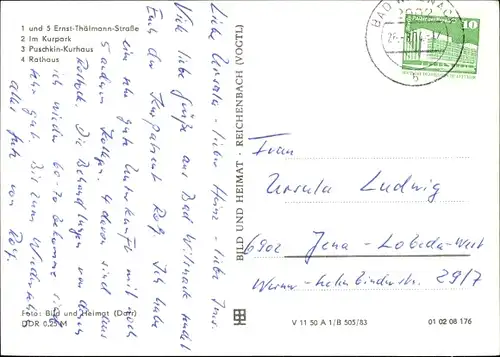 1 und 5 Ernst-Thälmann-Straße
2 Im Kurpark
3 Puschkin-Kurhaus
4 Rathaus
Liebe Ursula - lieber Heinz - liebe Ines.
Viele liebe Grüße aus Bad Wilsnack sendet
Euch der Kurpatient Rolf. Ich habe
ein sehr gute Unterkunft mit noch
5 andern Kollegen. 4 davon sind aus
Rostock. Die Behandlungen von denen
ich wieder 60-70 bekomme sind
sehr gut. Bis zum Wiedersehn
alles gute von
Rolf.
Foto: Bild und Heimat (Darr)
DDR 0,25 M
BILD UND HEIMAT - REICHENBACH (VOGTL)
V 11 50 A 1/B 505/83
01 02 08 176
BAD WILSNACK
10
Frau
Ursula Ludwig
6902 Jena - Lobeda-West
29/7